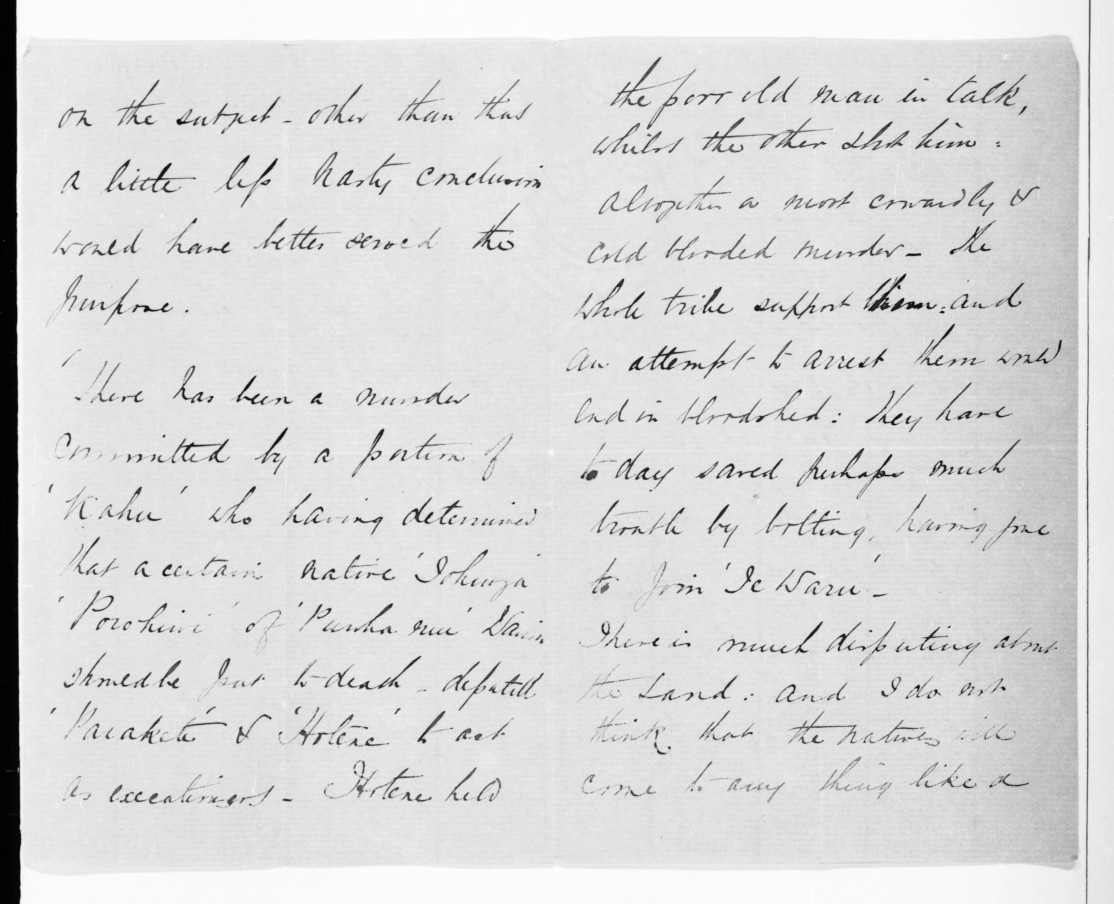 on the subject - other than that
a little less hasty conclusion
would have better served the
purpose.
There has been a murder
committed by a portion of
'Kahu' who having determined
that a certain native
'Porokiwi' of
should be put to death - deputed
'Paiaketi' & 'Hotene' to act
as executioners - Hotene held
the poor old man in talk,
whilst the other shot him:
altogether a most cowardly &
cold blooded murder - The
whole tribe support them: and
an attempt to arrest them would
end in bloodshed: They have
to day saved perhaps much
trouble by bolting, having gone
to join 'Te Waru' -
There is much disputing about
the Land: and I do not
think that the natives will
come to any thing like a